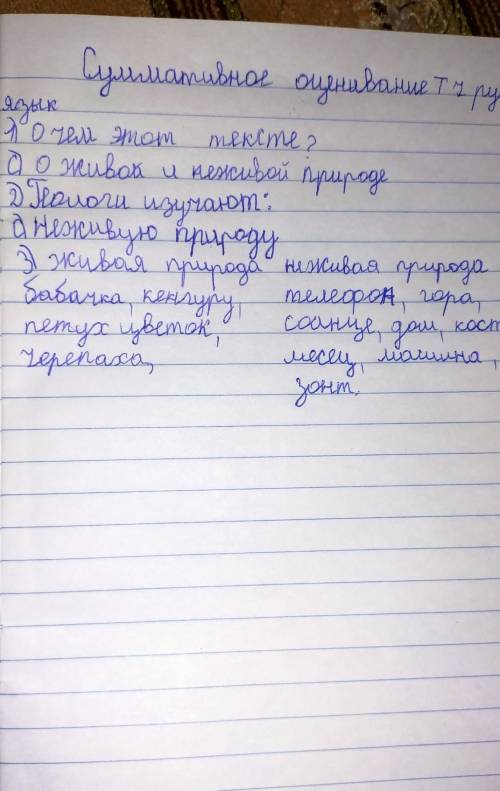 Суммативное оценивание Т 1 ру
язык
1) О чем этот тексте?
с) О живой и неживой природе
2) Геологи изучают:
с) Неживую природу
3) живая природа неживая природа
бабачка, кенгуру, телефон, гора,
петух цветок, солнце, дом, кост
черепаха, месец, машина,
зонт.